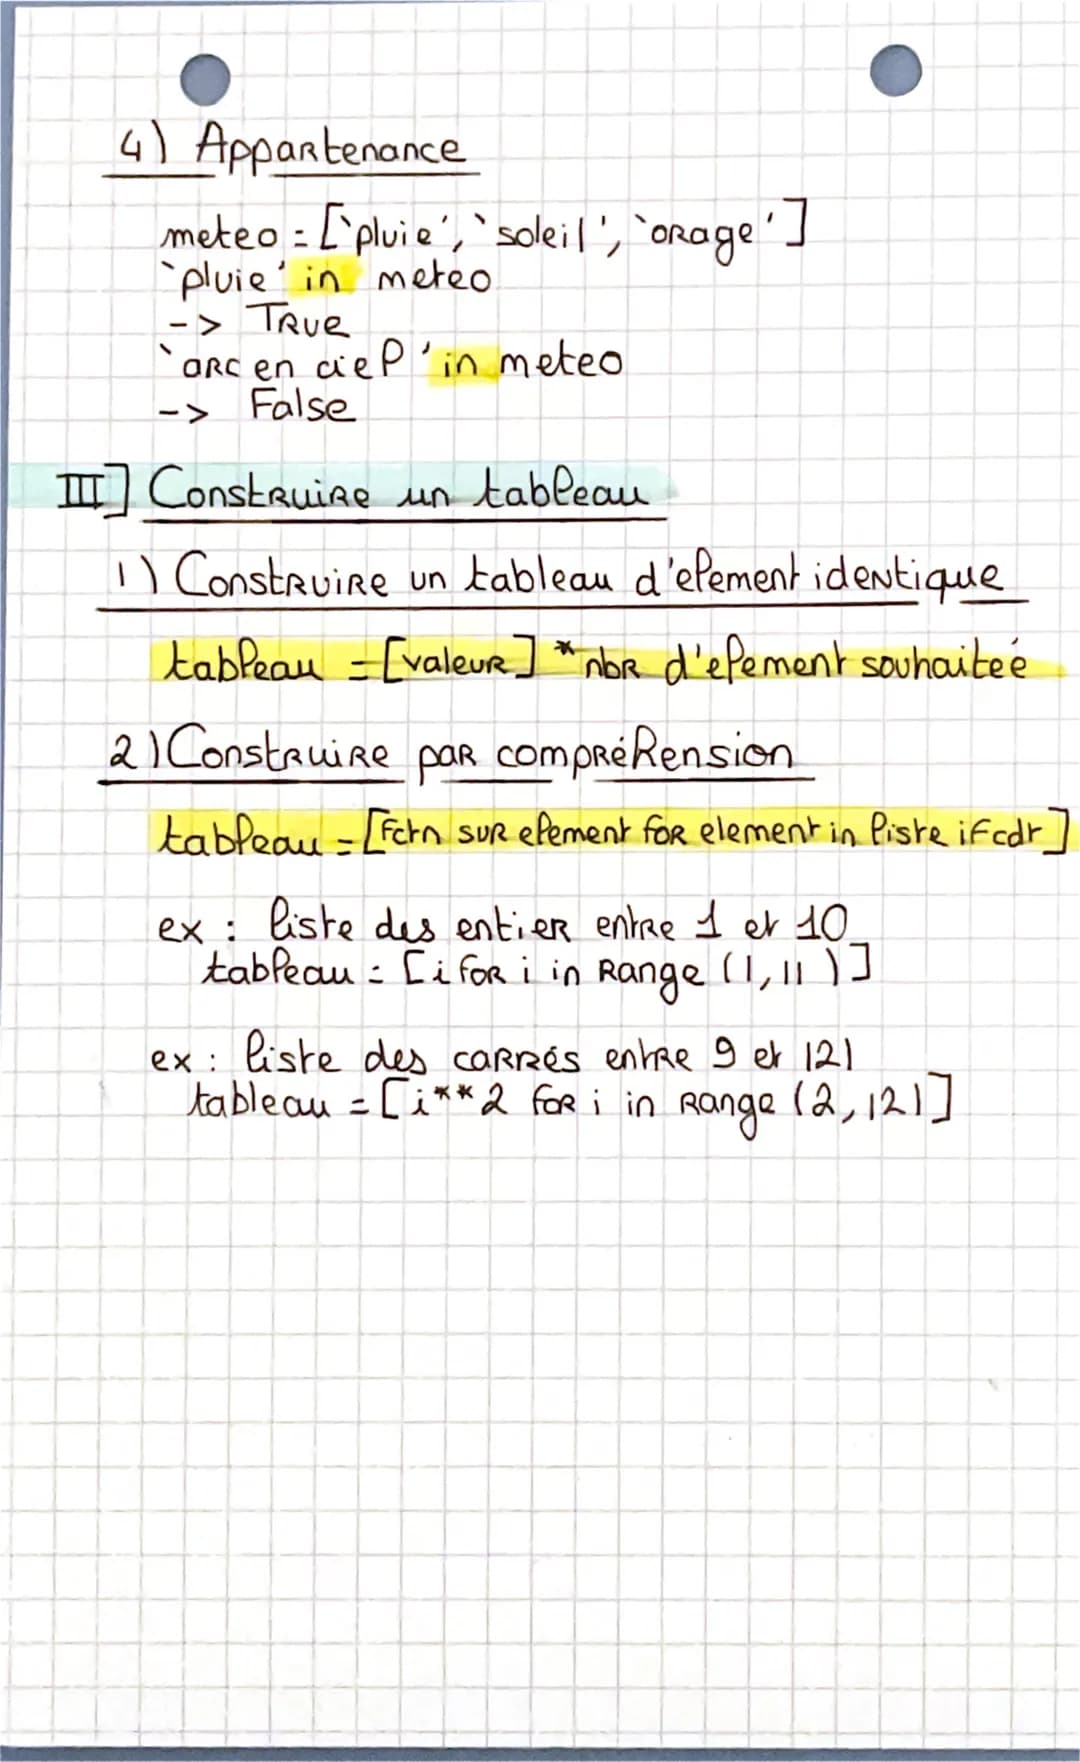 4) Appartenance
meteo = [`pluie', `soleil', `orage']
`pluie' in meteo
-> True
`arc en ciel' in meteo
-> False
III] Construire un tableau
1) Construire un tableau d'element identique
tableau = [valeur] * nbr d'element souhaiteé
2) Construire par compréhension
tableau = [Fctn sur element for element in liste if cdt]
ex : liste des entier entre 1 et 10
tableau = [i for i in Range (1,11)]
ex : liste des carrés entre 9 et 121
tableau = [i**2 for i in Range (2,121]